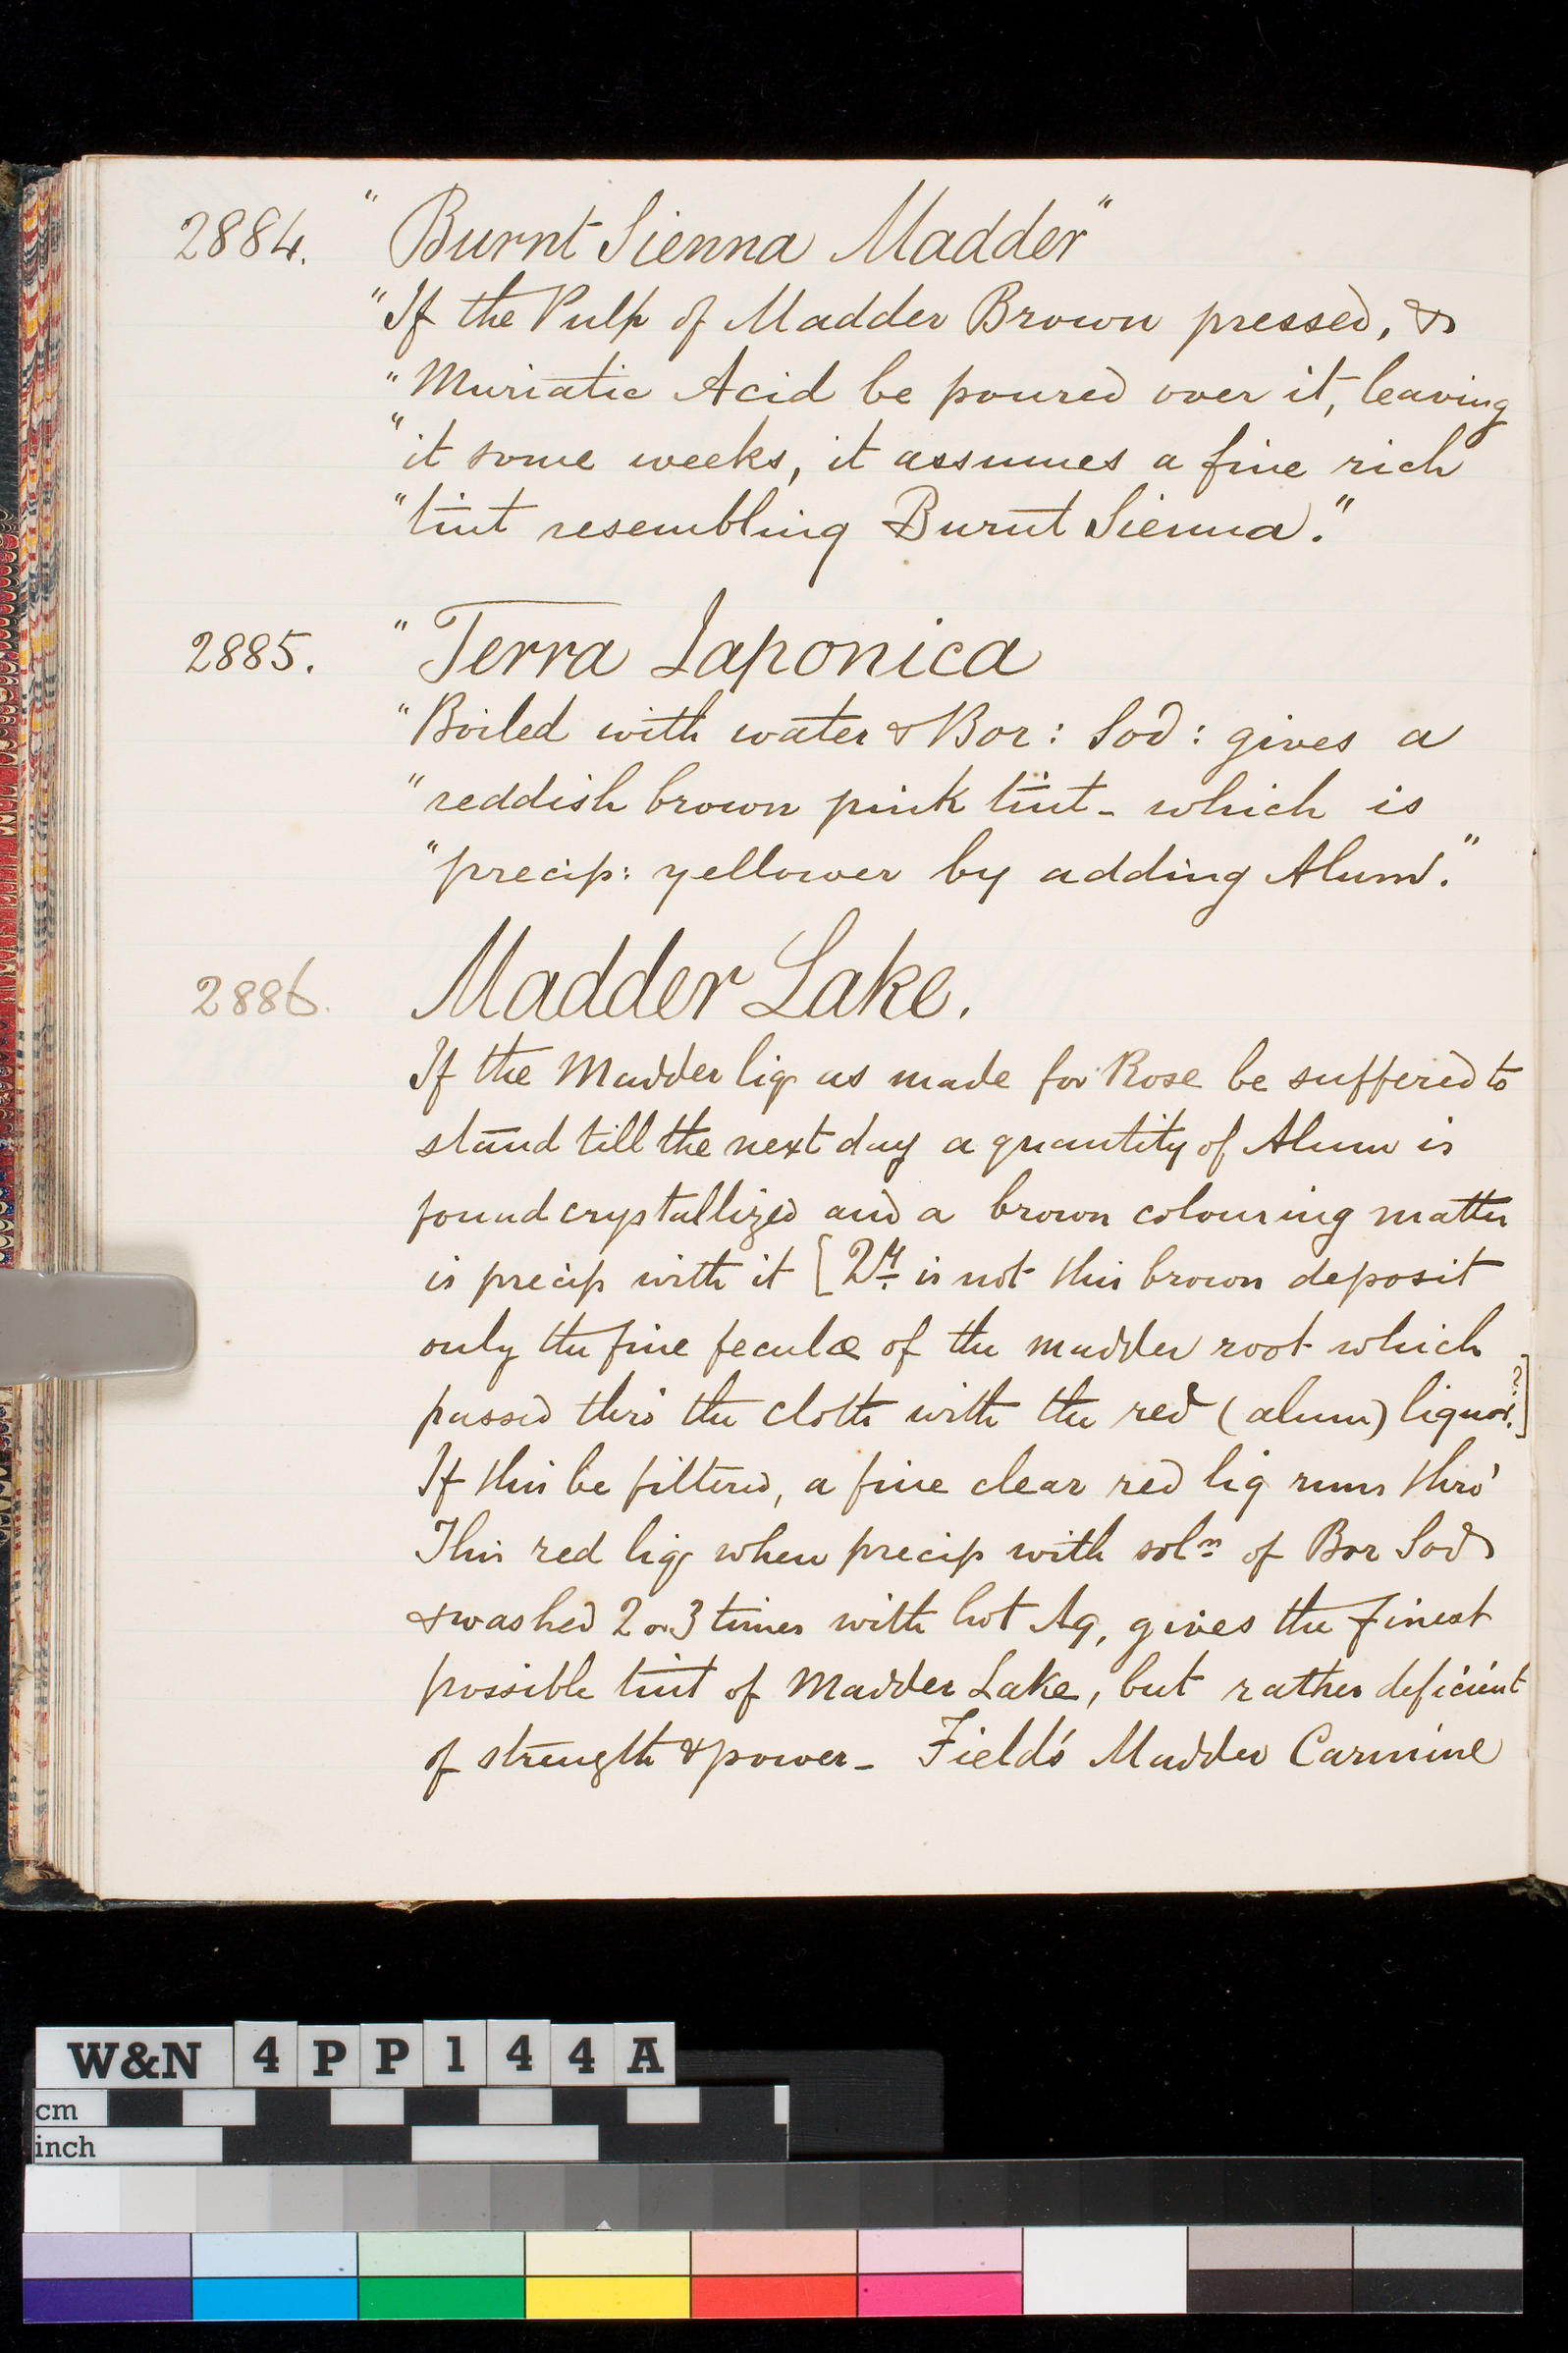 2884. " Burnt Sienna Madder"
"If the Pulp of Madder Brown pressed, &
"Muriatic Acid be poured over it, leaving
"it some weeks, it assumes a fine rich
"tint resembling Burnt Sienna."
2885. " Terra Japonica
"Boiled with water & Bor: Sod: gives a
"reddish brown pink tint - which is
"precip: yellower by adding Alum."
2886. Madder Lake.
If the Madder liq as made for Rose be suffered to
stand till the next day a quantity of Alum is
found crystallized and a brown colouring matter
is precip with it [Qy. is not this brown deposit
only the fine feculæ of the madder root which
passed thro' the cloth with the red (alum) liquor.?]
If this be filtered, a fine clear red liq runs thro'
This red liq when precip with soln. of Bor Sod
& washed 2 or 3 times with hot Aq, gives the finest
possible tint of Madder Lake, but rather deficient
of strength & power - Field's Madder Carmine
W&N 4PP144A
cm
inch